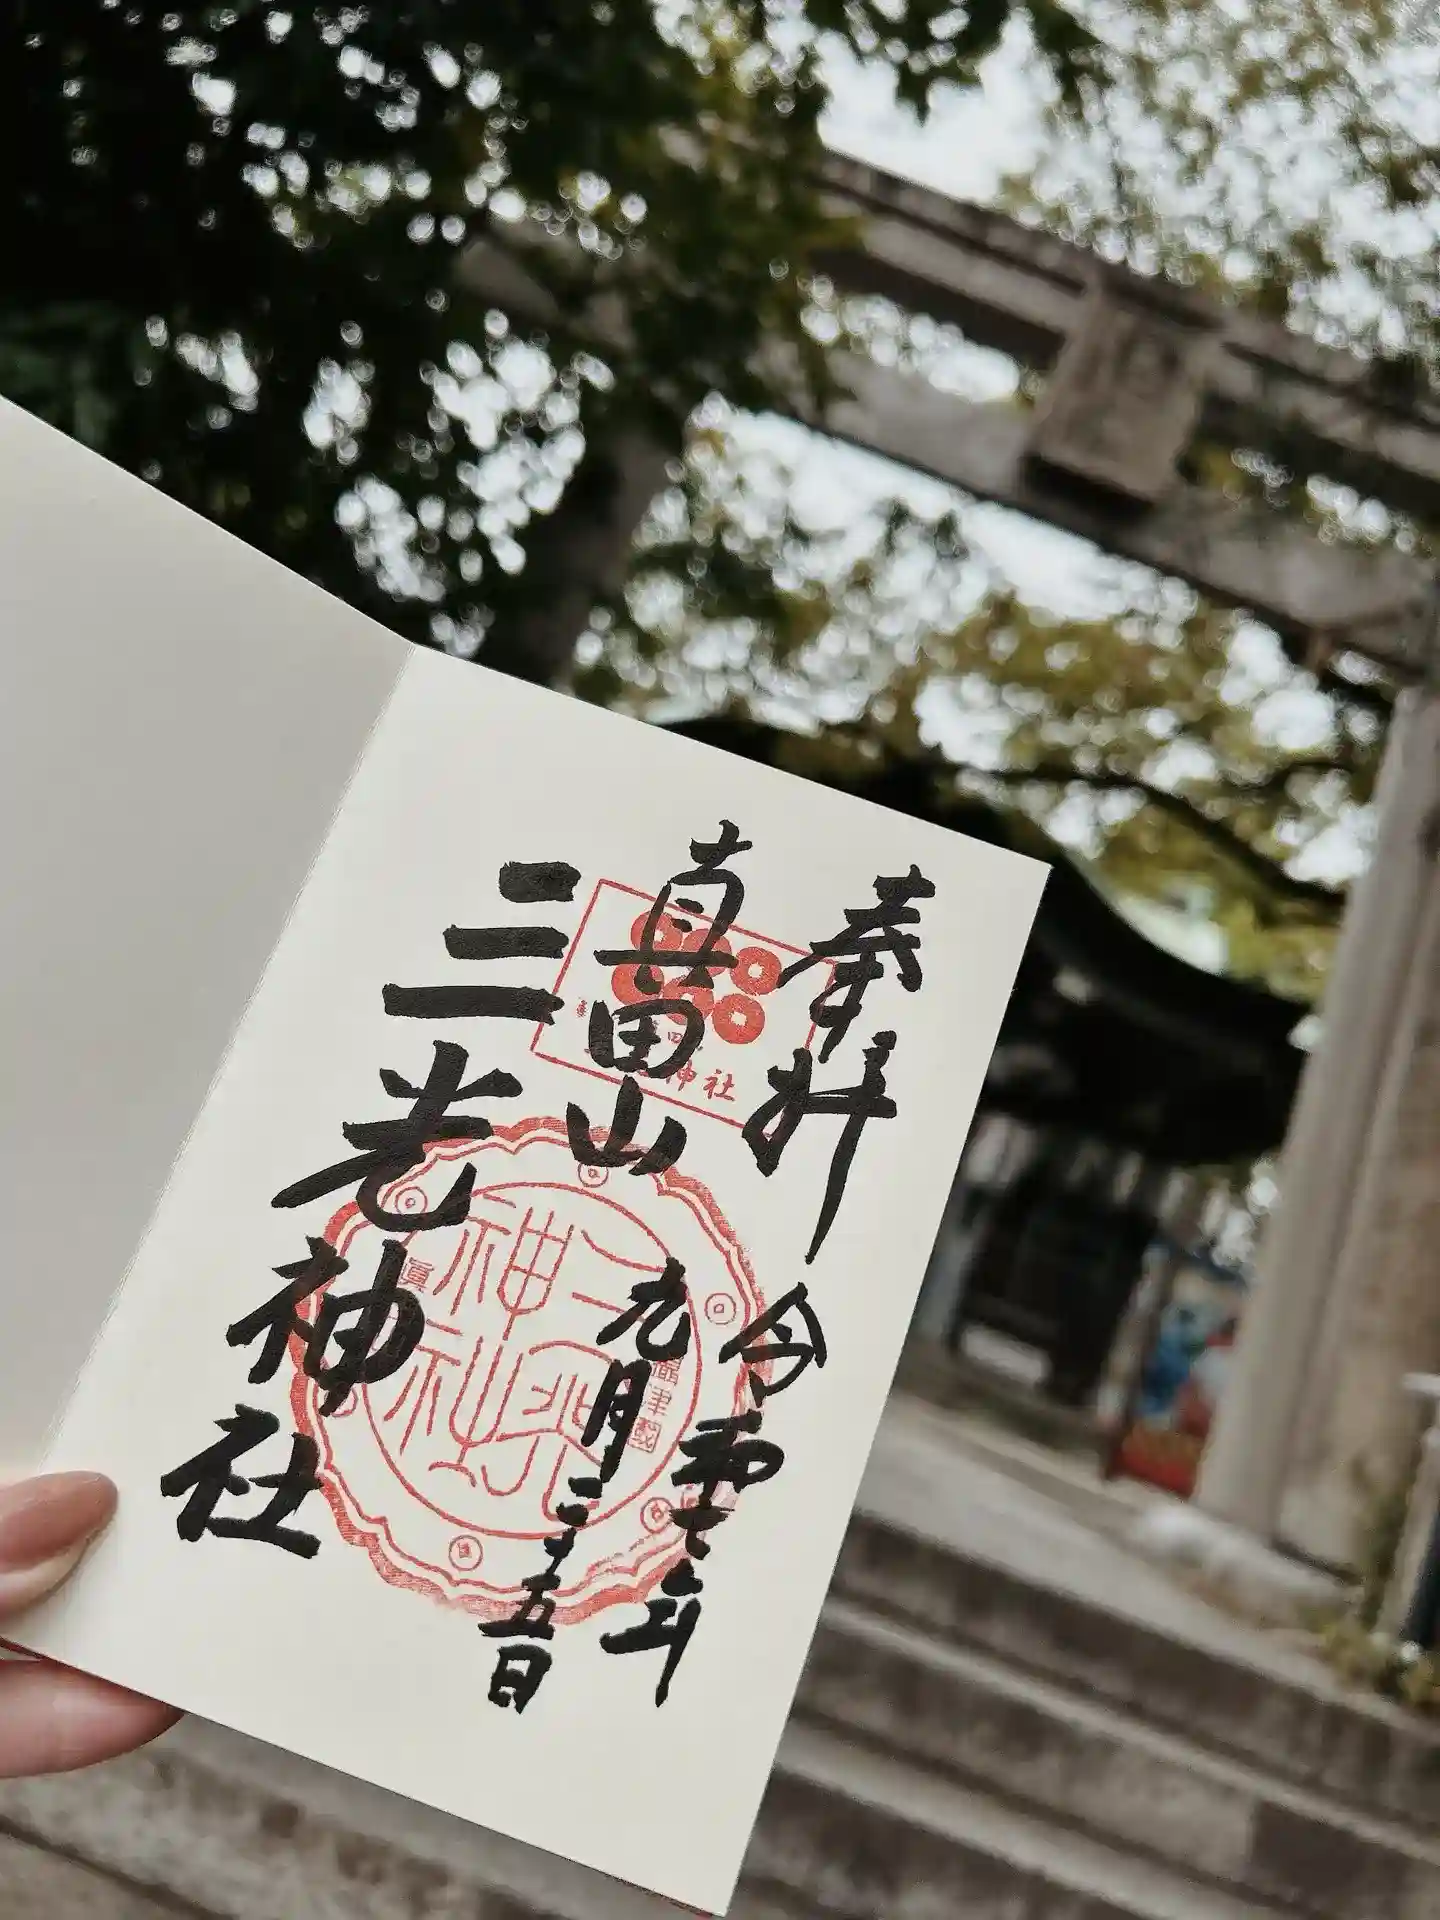 奉拝
令和七年
真田山
九月二十五日
三光神社
神社
三光
神社